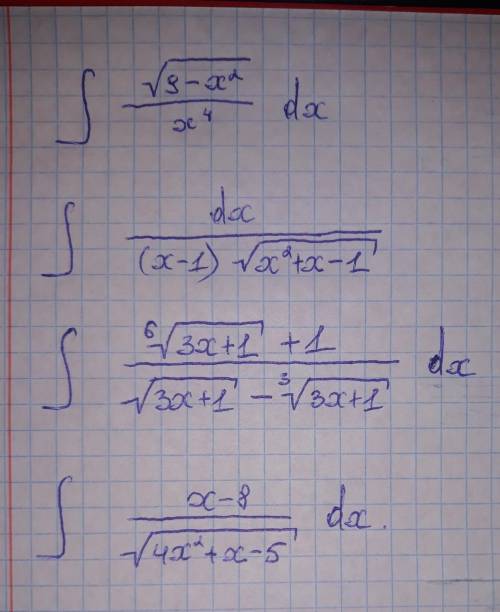 ∫ √(9 − x²) / x⁴ dx
∫ dx / ((x−1) √(x²+x−1))
∫ (⁶√(3x+1) + 1) / (√(3x+1) − ³√(3x+1)) dx
∫ (x−8) / √(4x²+x−5) dx.